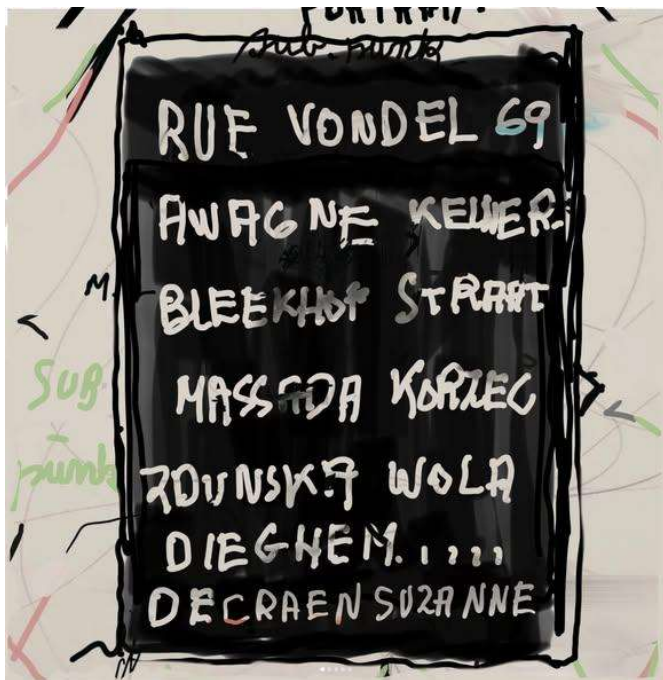 Sub-punk
RUE VONDEL 69
AWAGNE KELLER.
M.
BLEEKHOF STRAAT
MASSADA KORZEC
SUB
-
punk
ZDUNSKA WOLA
DIEGHEM.,,,,
DECRAEN SUZANNE